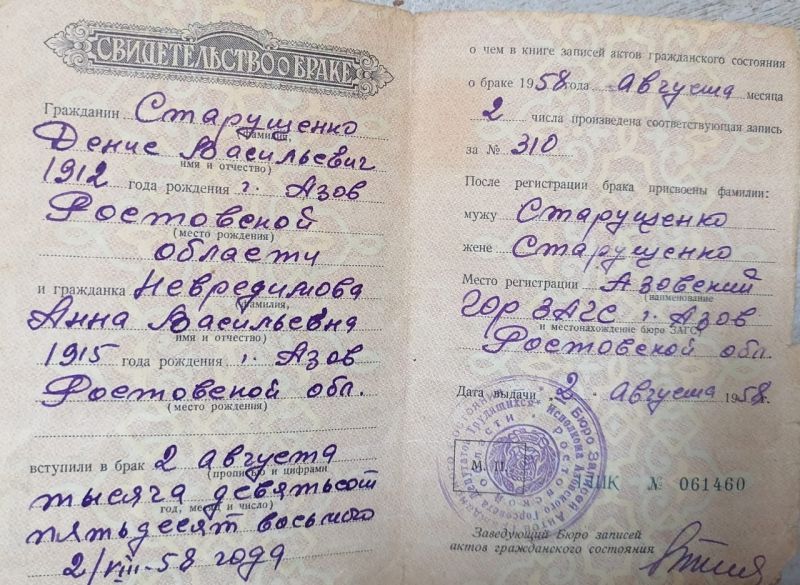 СВИДЕТЕЛЬСТВО О БРАКЕ
Гражданин Старущенко
(фамилия,
Денис Васильевич
имя и отчество)
1912 года рождения г. Азов
Ростовской
(место рождения)
области
и гражданка Невредимова
(фамилия,
Анна Васильевна
имя и отчество)
1915 года рождения г. Азов
Ростовской обл.
(место рождения)
вступили в брак 2 августа
(прописью и цифрами
тысяча девятьсот
год, месяц и число)
пятьдесят восьмого
2/VIII-58 года
о чем в книге записей актов гражданского состояния
о браке 1958 года августа месяца
2 числа произведена соответствующая запись
за № 310
После регистрации брака присвоены фамилии:
мужу Старущенко
жене Старущенко
Место регистрации Азовский
(наименование
Гор ЗАГС г. Азов
и местонахождение бюро ЗАГС)
Ростовской обл.
Дата выдачи 2 августа 1958 г.
Бюро Записей Актов
Трудящихся
Исполкома Азовского Горсовета
Ростовской
М. П.
№ 061460
Заведующий Бюро записей
актов гражданского состояния